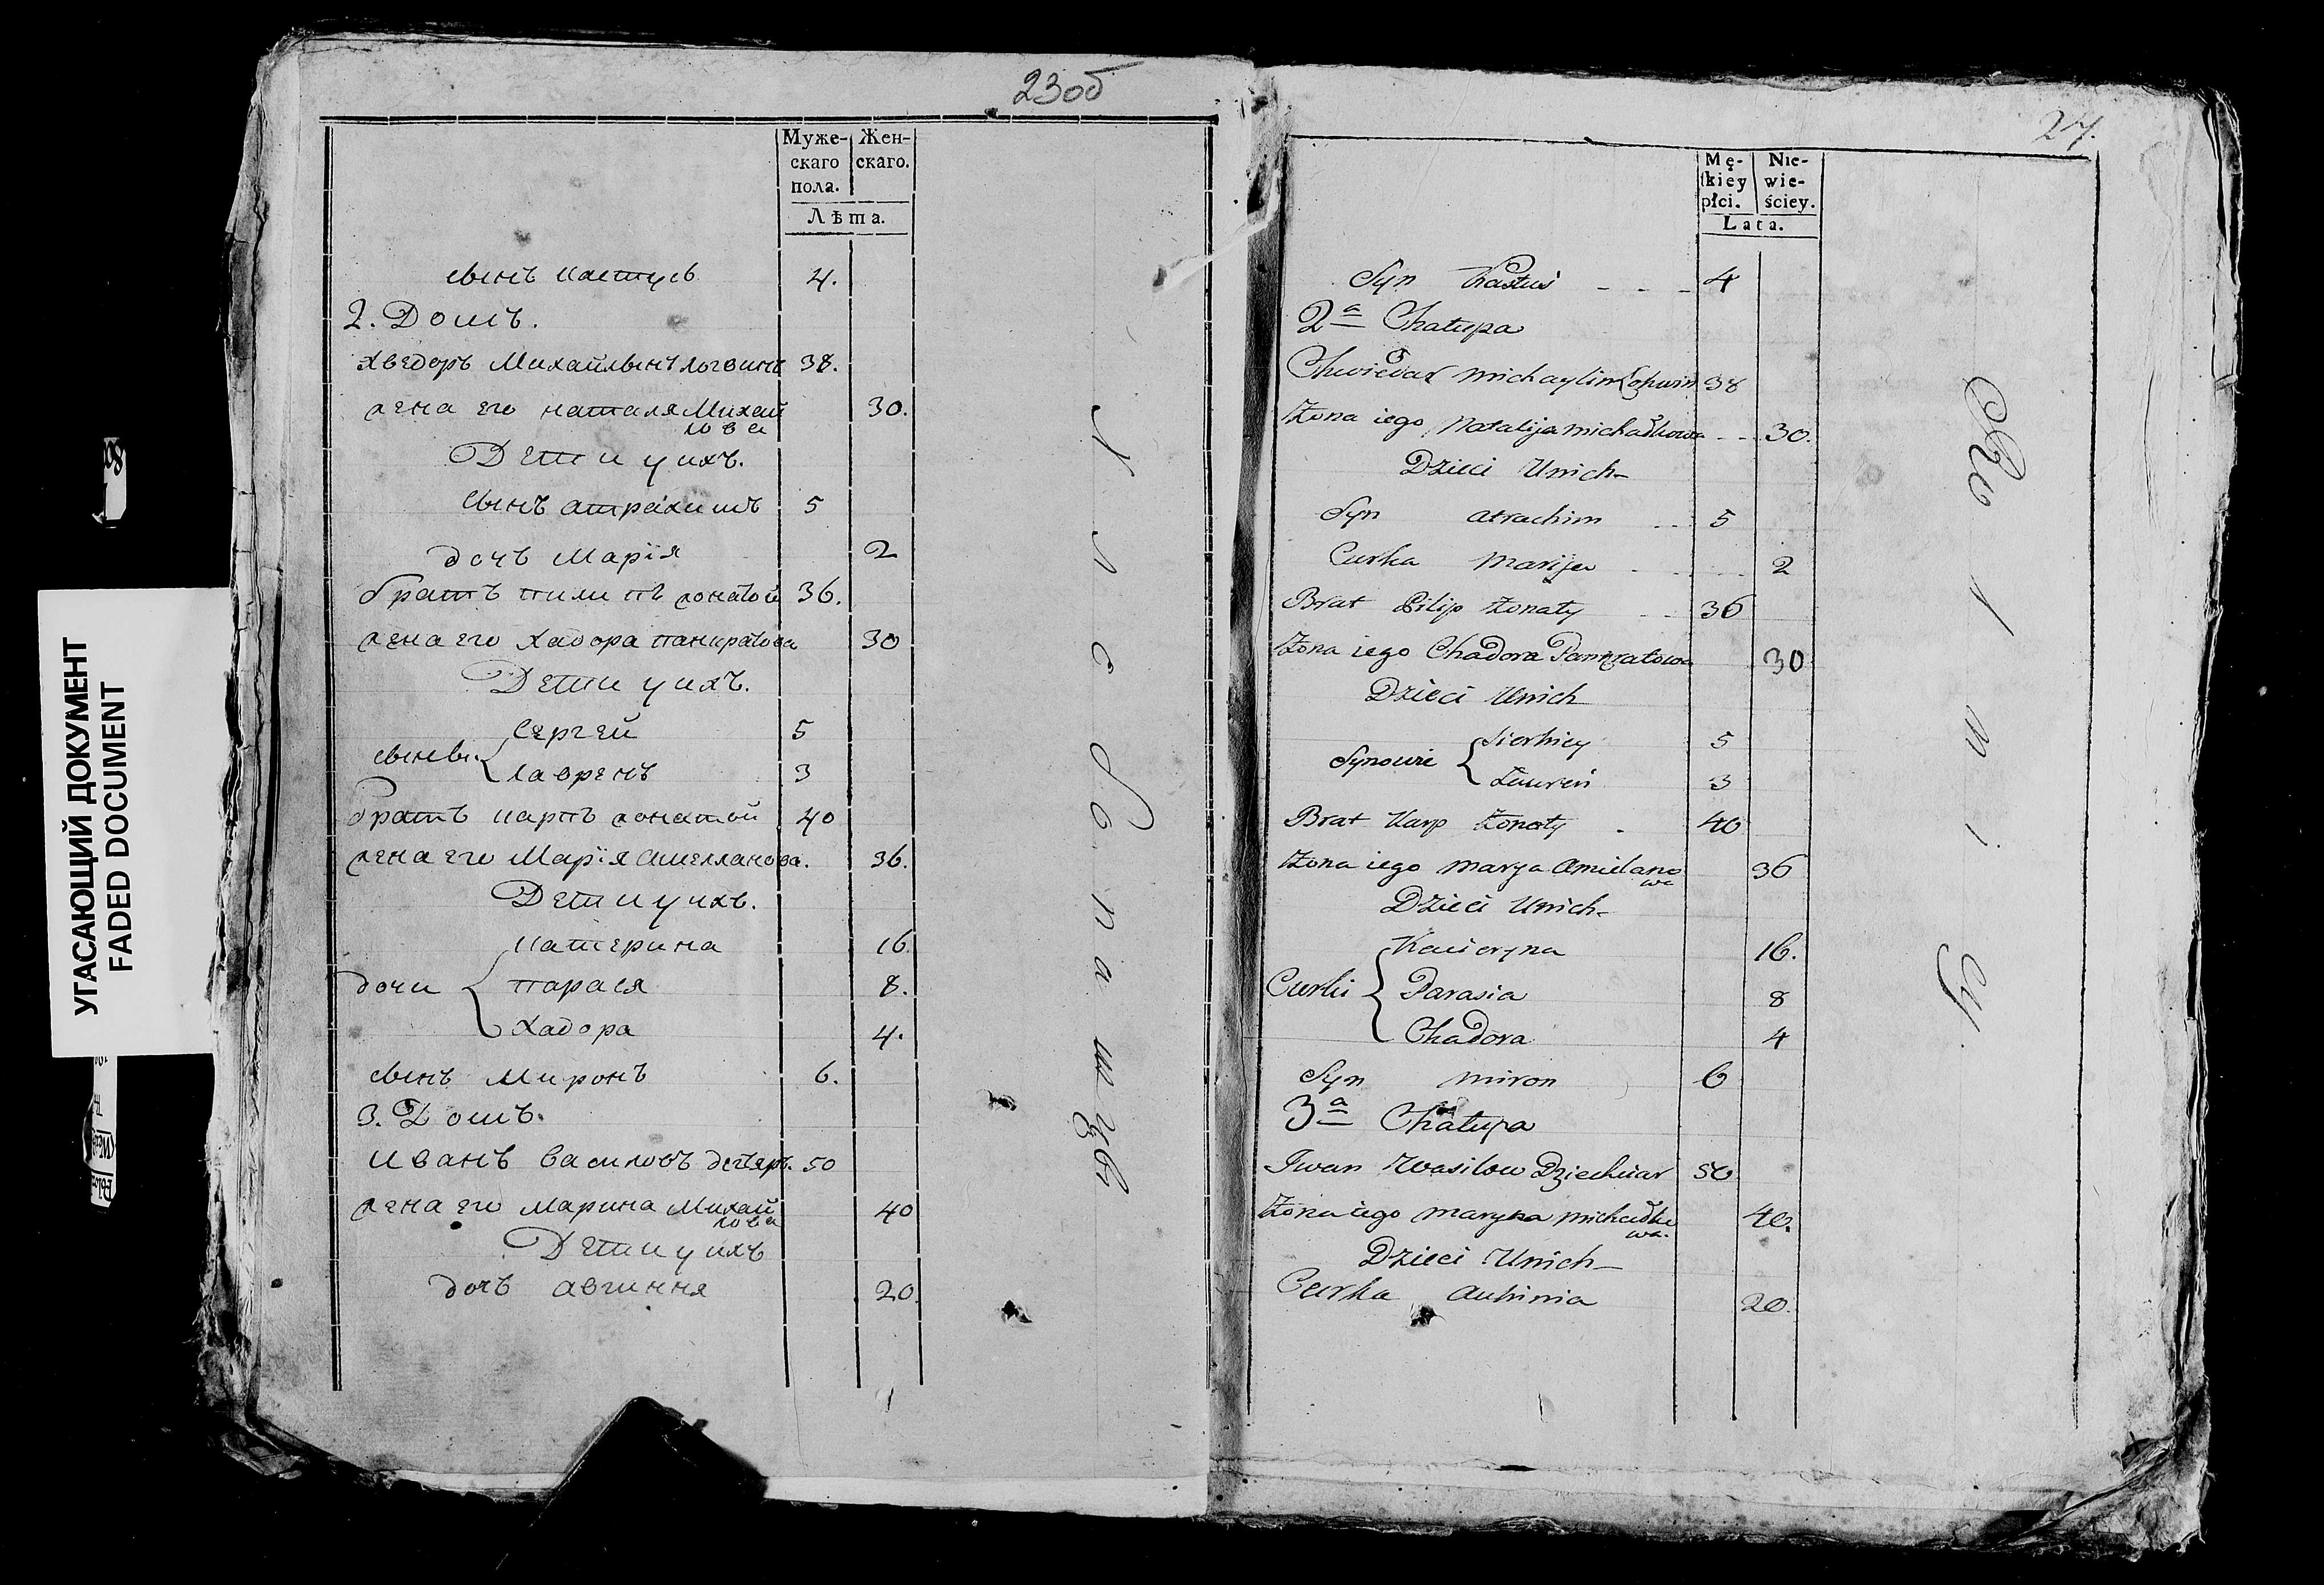 23об
Муже-
скаго
пола.
Жен-
скаго.
Лѣта.
сынъ кастусь 4.
2. Домъ.
хведоръ Михайлынъ логвинъ 38.
жена его наталя Михай
лова 30.
Дети у ихъ.
сынъ атрахимъ 5
дочъ Марїя 2
братъ пилипъ жонатой 36.
жена его хадора панкратова 30
Дети у ихъ.
сыны Сергей 5
лавренъ 3
братъ карпъ жонатой 40
жена его Марїя амелланова. 36.
Дети у ихъ.
катерина 16.
дочи парася 8.
хадора 4.
сынъ Миронъ 6.
3. Домъ.
Иванъ василовъ дегтяръ. 50
жена его марина Михай
лова 40
Дети у ихъ
дочъ авгиння 20.
24.
Mę-
skiey
płci.
Nie-
wie-
ściey.
Lata.
Syn Kastuś 4
2a Chałupa
Chwiedar Michaylin Łohwin 38
Żona iego Natalija Michałkowa 30.
Dzieci Unich
Syn Atrachim 5
Curka Marija 2
Brat Pilip Żonaty 36
Żona iego Chadora Pankratowa 30
Dzieci Unich
Synowie Sierhiey 5
Ławren 3
Brat Karp Żonaty 40
Żona iego Marya Amielano
wa 36
Dzieci Unich
Kacieryna 16.
Curki Parasia 8
Chadora 4
Syn Miron 6
3a Chałupa
Iwan Wasilow Dziechciar 50
Żona iego Maryna Michałko
wa. 40.
Dzieci Unich
Curka Auhinia 20.
УГАСАЮЩИЙ ДОКУМЕНТ
FADED DOCUMENT